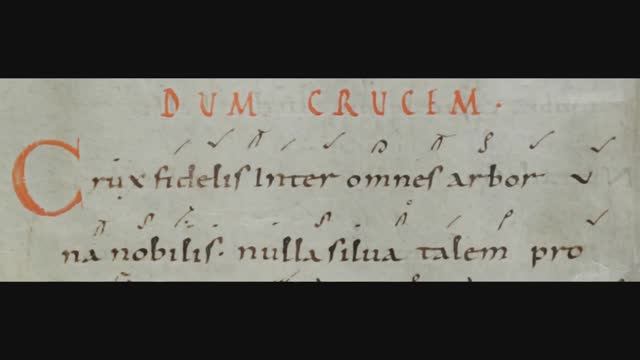 DUM CRUCEM ·
Crux fidelis Inter omnes arbor u
na nobilis · nulla silua talem pro